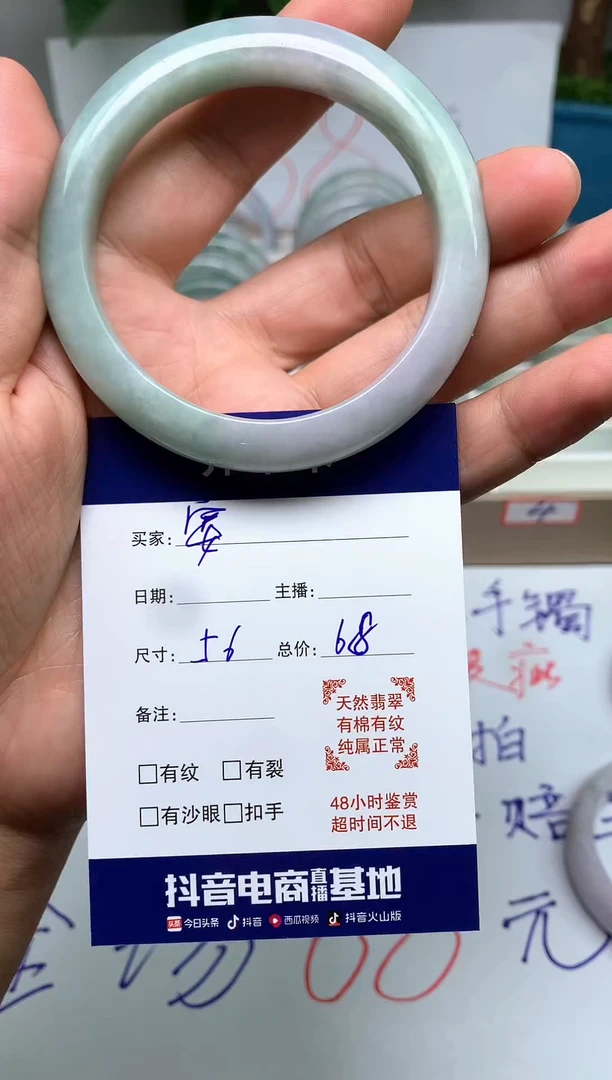 买家: 安
日期: 主播:
尺寸: 56 总价: 68
备注:
天然翡翠
有棉有纹
纯属正常
□有纹 □有裂
□有沙眼□扣手
48小时鉴赏
超时间不退
抖音电商直播基地
头条 今日头条 抖音 西瓜视频 抖音火山版
4
手镯
疵
拍
赔
全场 60 元